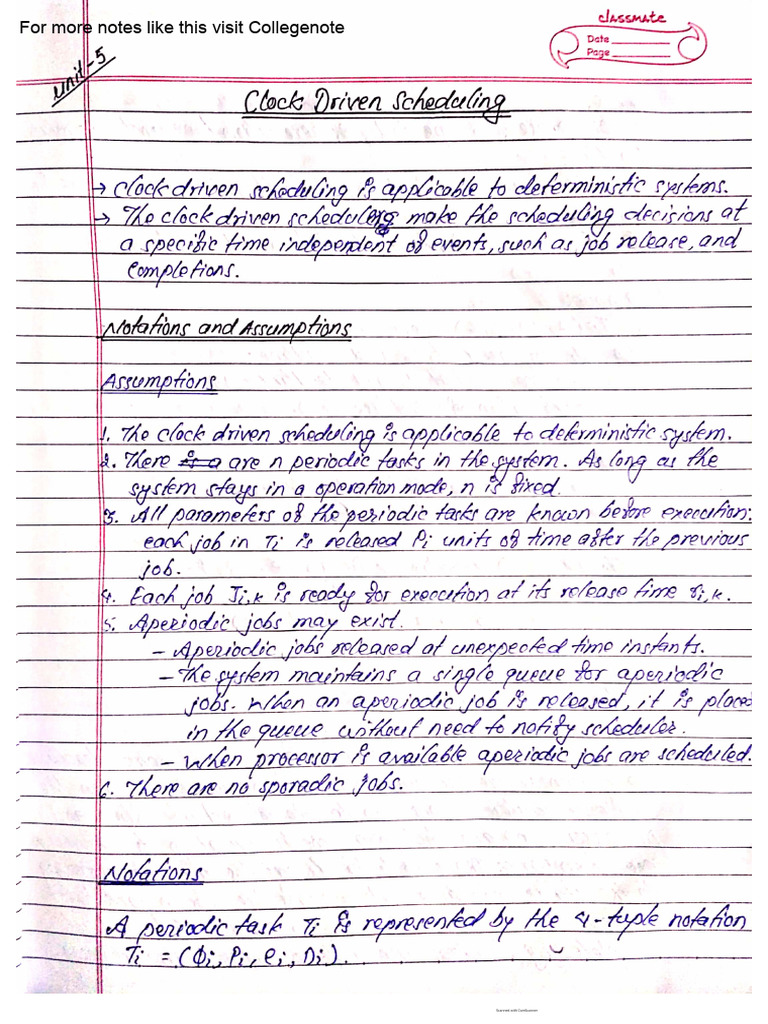 For more notes like this visit Collegenote
classmate
Date
Page
Unit-5
Clock Driven Scheduling
→ Clock driven scheduling is applicable to deterministic systems.
→ The clock driven scheduling make the scheduling decisions at
a specific time independent of events, such as job release, and
completions.
Notations and Assumptions
Assumptions
1. The clock driven scheduling is applicable to deterministic system.
2. There is a are n periodic tasks in the system. As long as the
system stays in a operation mode, n is fixed.
3. All parameters of the periodic tasks are known before execution:
each job in Ti is released Pi units of time after the previous
job.
4. Each job Ji,k is ready for execution at its release time ri,k.
5. Aperiodic jobs may exist.
- Aperiodic jobs released at unexpected time instants.
- The system maintains a single queue for aperiodic
jobs. When an aperiodic job is released, it is placed
in the queue without need to notify scheduler.
- When processor is available aperiodic jobs are scheduled.
6. There are no sporadic jobs.
Notations
A periodic task Ti is represented by the 4-tuple notation
Ti = (Φi, Pi, ei, Di).
Scanned with CamScanner